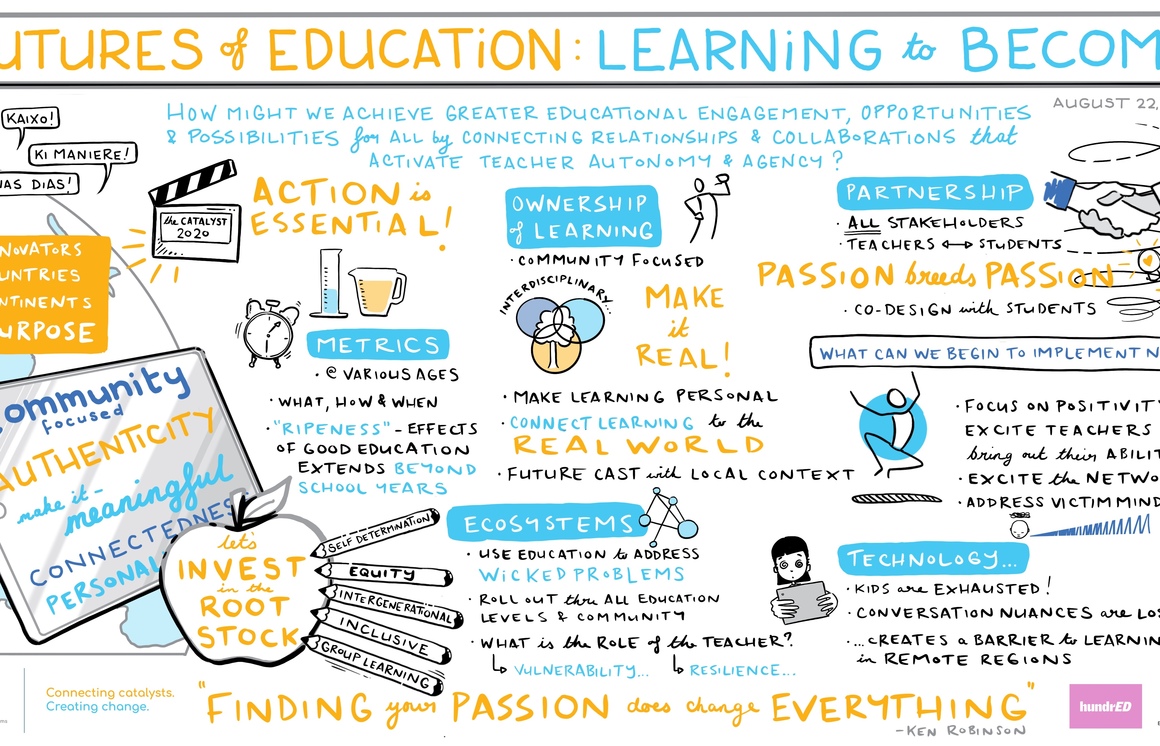 UTURES of EDUCATION: LEARNING to BECOM
AUGUST 22,
HOW MIGHT WE ACHIEVE GREATER EDUCATIONAL ENGAGEMENT, OPPORTUNITIES
& POSSIBILITIES for ALL by CONNECTING RELATIONSHIPS & COLLABORATIONS that
ACTIVATE TEACHER AUTONOMY & AGENCY?
KAIXO!
KI MANIERE!
NAS DIAS!
NOVATORS
UNTRIES
NTINENTS
URPOSE
the CATALYST
2020
ACTION is
ESSENTIAL!
METRICS
· @ VARIOUS AGES
· WHAT, HOW & WHEN
· "RIPENESS" - EFFECTS
OF GOOD EDUCATION
EXTENDS BEYOND
SCHOOL YEARS
community
focused
AUTHENTICITY
make it -
meaningful
CONNECTEDNESS
PERSONAL
let's
INVEST
in the
ROOT
STOCK
SELF DETERMINATION
EQUITY
INTERGENERATIONAL
INCLUSIVE
GROUP LEARNING
OWNERSHIP
of LEARNING
· COMMUNITY FOCUSED
INTERDISCIPLINARY...
MAKE
it
REAL!
· MAKE LEARNING PERSONAL
· CONNECT LEARNING to the
REAL WORLD
· FUTURE CAST with LOCAL CONTEXT
ECOSYSTEMS
· USE EDUCATION to ADDRESS
WICKED PROBLEMS
· ROLL OUT thru ALL EDUCATION
LEVELS & COMMUNITY
· WHAT is the ROLE of the TEACHER?
↳ VULNERABILITY... ↳ RESILIENCE...
PARTNERSHIP
· ALL STAKEHOLDERS
· TEACHERS ↔ STUDENTS
PASSION breeds PASSION
· CO-DESIGN with STUDENTS
WHAT CAN WE BEGIN TO IMPLEMENT N
· FOCUS ON POSITIVITY
EXCITE TEACHERS
bring out their ABILIT
· EXCITE the NETWO
· ADDRESS VICTIM MIND
TECHNOLOGY...
· KIDS are EXHAUSTED!
· CONVERSATION NUANCES are LOS
· ...CREATES a BARRIER to LEARNIN
in REMOTE REGIONS
Connecting catalysts.
Creating change.
"FINDING your PASSION does change EVERYTHING"
-KEN ROBINSON
hundrED